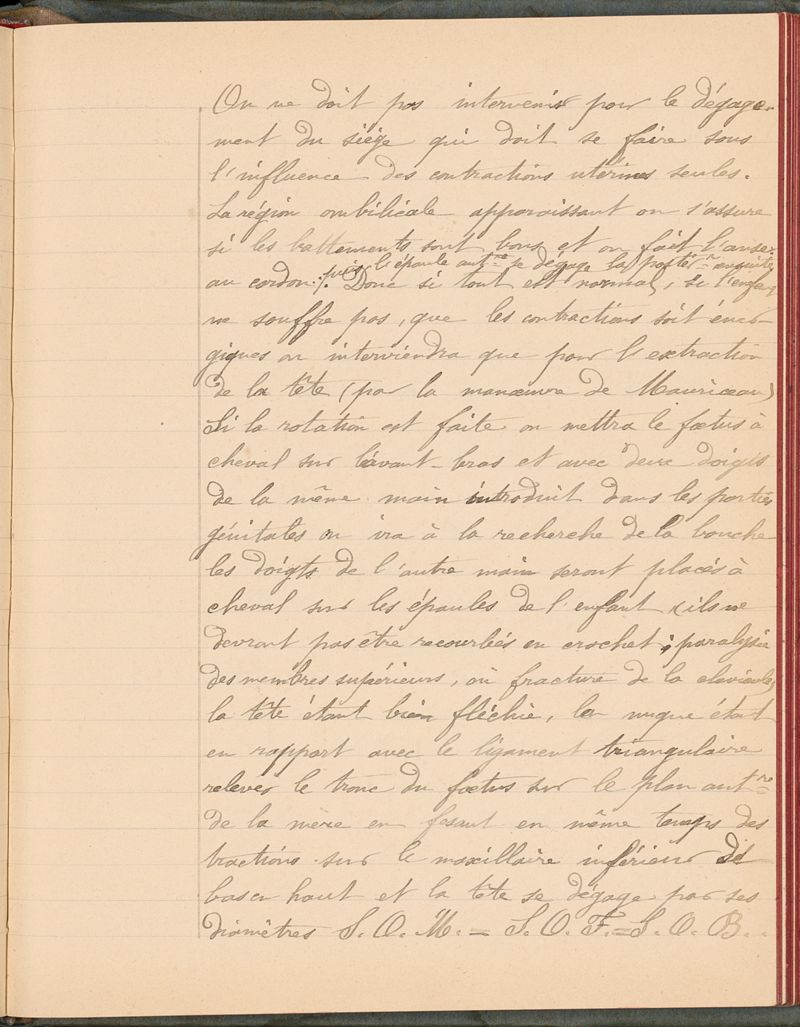 On ne doit pas intervenir pour le dégage-
ment du siège qui doit se faire sous
l'influence des contractions utérines seules.
La région ombilicale apparaissant on s'assure
si les battements sont bons et on fait l'anse
puis l'épaule ant.re se dégage la postér.re ensuite
au cordon. Donc si tout est normal, si l'enfant
ne souffre pas, que les contractions soit éner-
giques on interviendra que pour l'extraction
de la tête (par la manœuvre de Mauriceau)
Si la rotation est faite on mettra le fœtus à
cheval sur l'avant-bras et avec deux doigts
de la même main introduit dans les parties
génitales on ira à la recherche de la bouche
les doigts de l'autre main seront placés à
cheval sur les épaules de l'enfant (ils ne
devront pas être recourbés en crochet; paralysie
des membres supérieurs, ou fracture de la clavicule)
la tête étant bien fléchie, la nuque étant
en rapport avec le ligament triangulaire
relever le tronc du fœtus sur le plan ant.re
de la mère en fesant en même temps des
tractions sur le maxillaire inférieur de
bas en haut et la tête se dégage par ses
diamètres S. O. M. = S. O. F. = S. O. B..